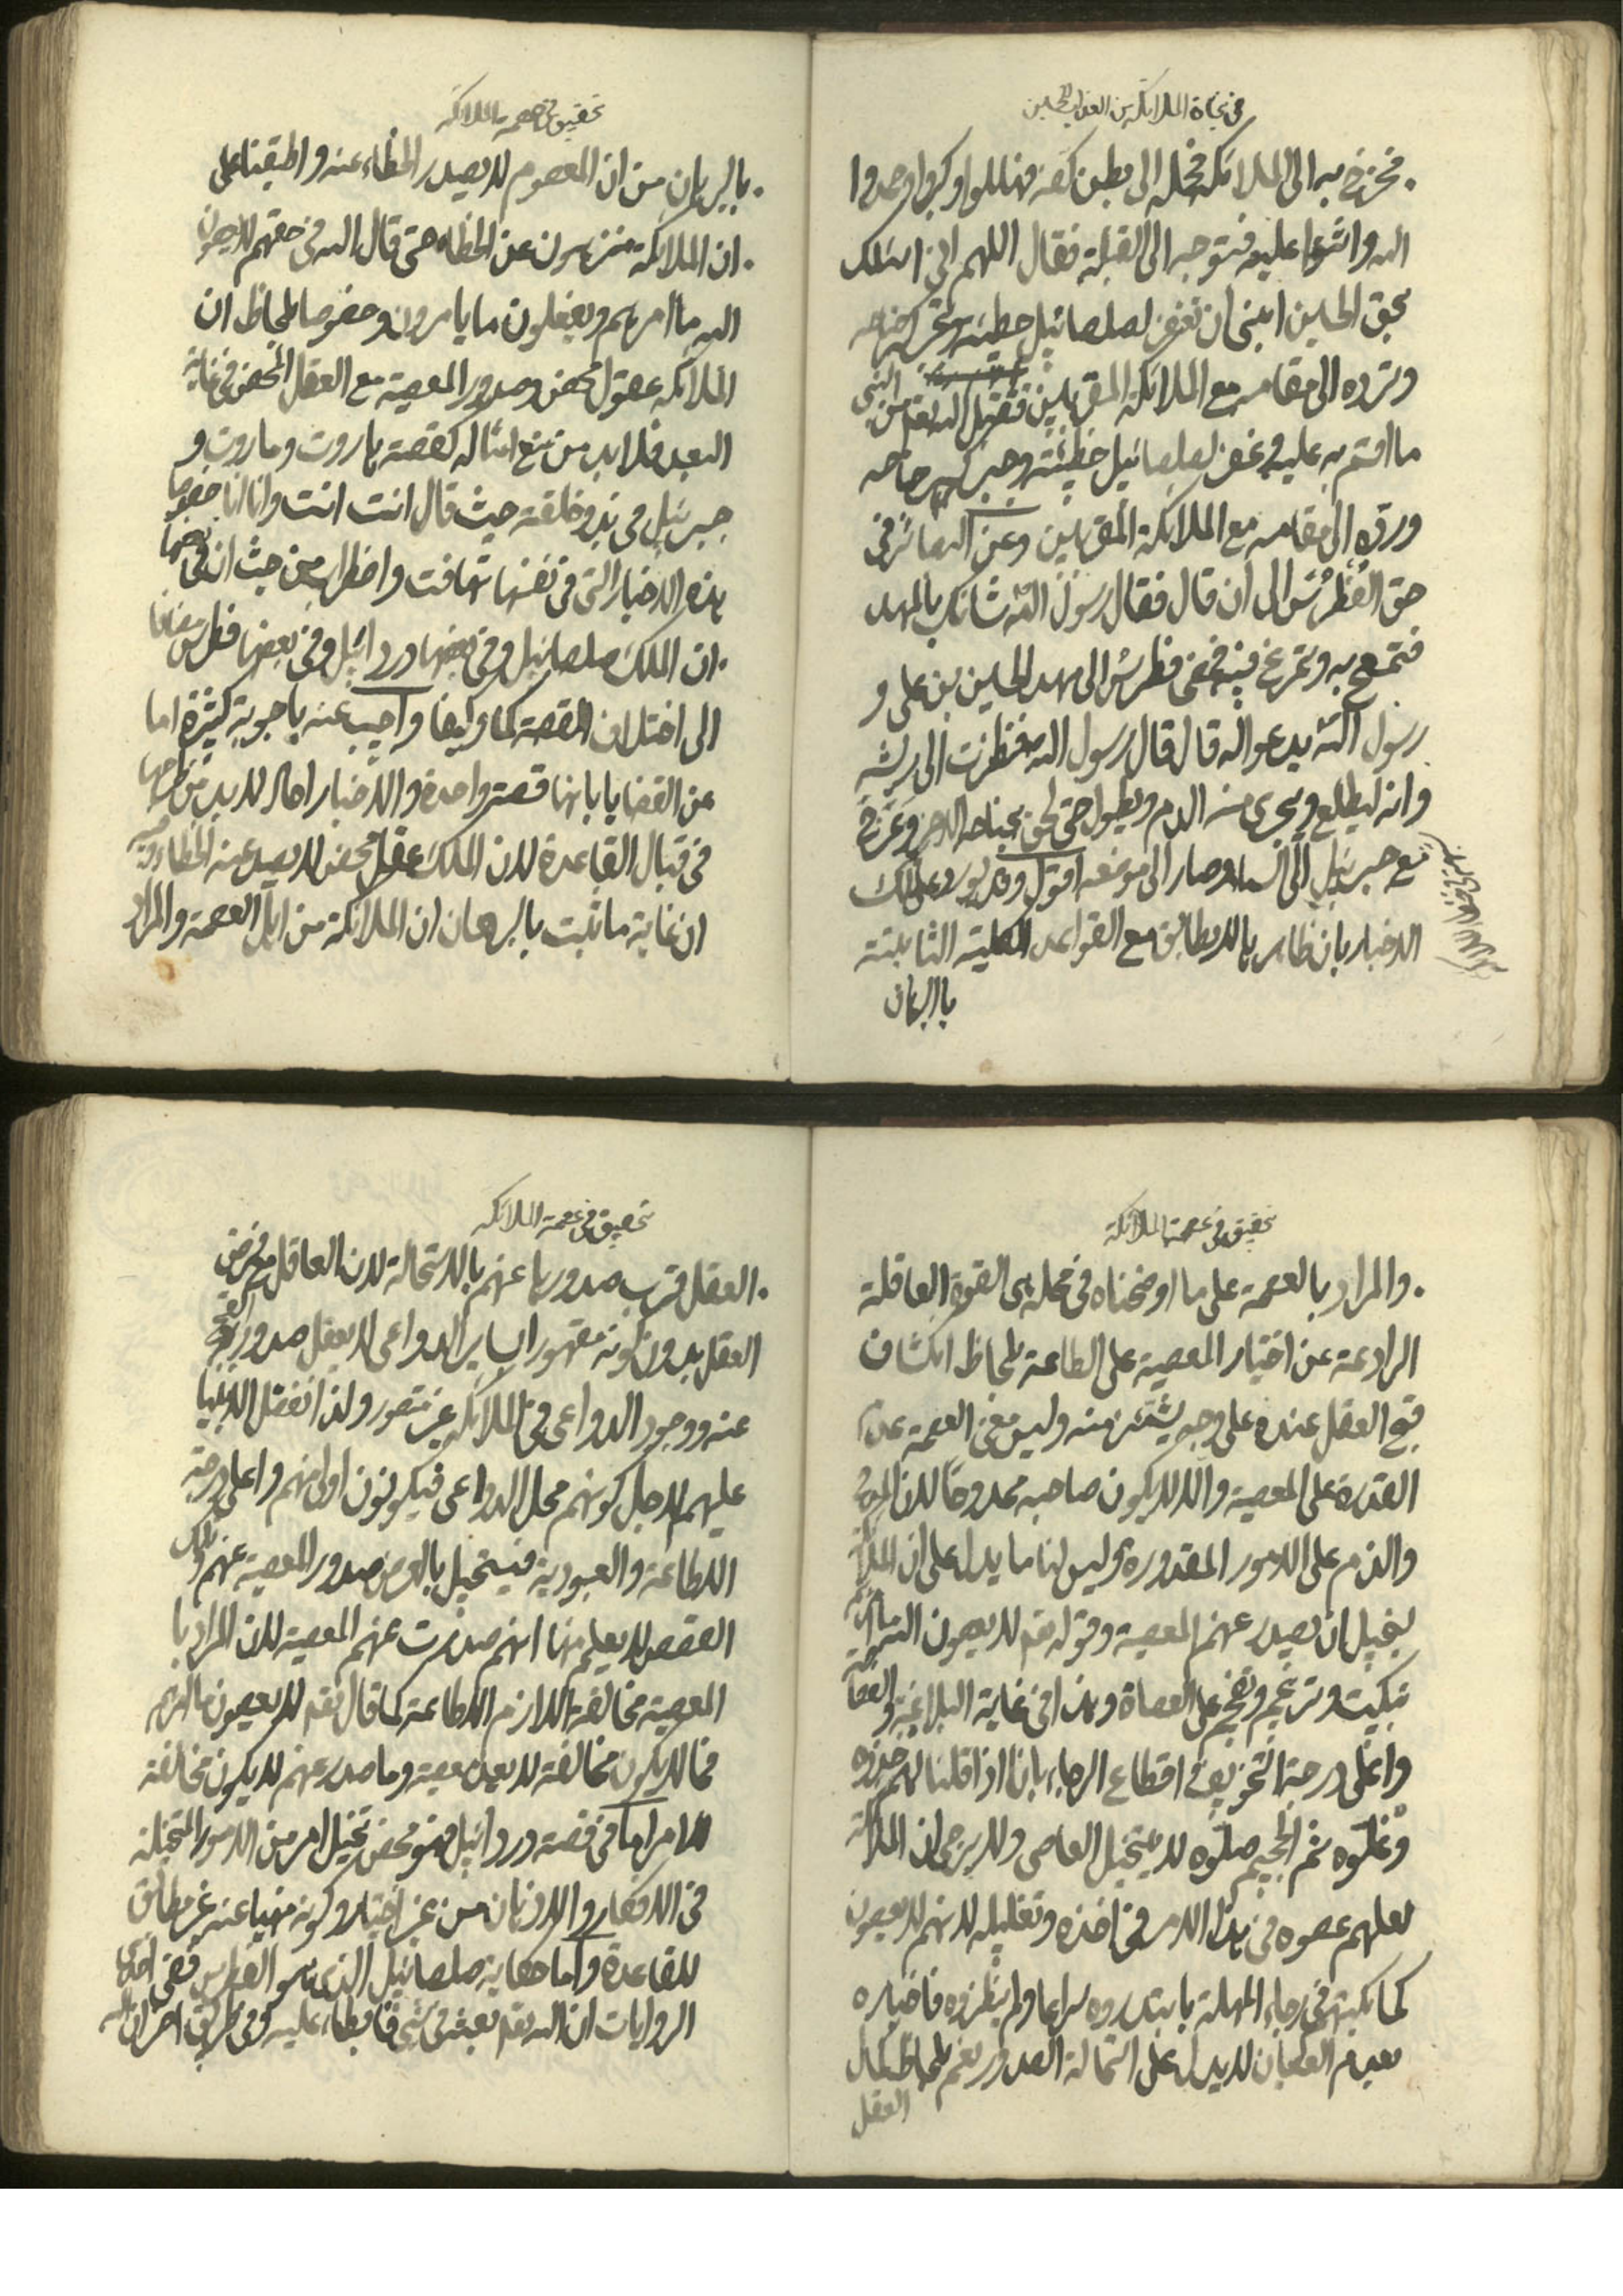 في نجاة الملائكة من العذاب بالحسين
فخرج به الى الملائكة فحمله الى بطن كفه فهللوا وكبروا وحمدوا
الله واثنوا عليه فتوجه الى القبلة فقال اللهم اني اسئلك
بحق الحسين ابني ان تغفر لصلصائيل خطيئته وتجبر كسر جناحه
وترده الى مقامه مع الملائكة المقربين فتقبل الله تعم من النبي
ما اقسم به عليه وغفر لصلصائيل خطيئته وجبر كسر جناحه
ورده الى مقامه مع الملائكة المقربين وعن البصائر في
حق الفطرس الى ان قال فقال رسول الله شانك بالمهد
فتمسح به وتمرغ فيه فمضى فطرس الى مهد الحسين بن علي و
رسول الله يدعو اله قال قال رسول الله فنظرت الى ريشه
وانه ليطلع ويجري منه الدم ويطول حتى لحق بجناحه الاخر وعرج
مع جبرئيل الى السماء وصار الى موضعه اقول وقد يورد على تلك
الاخبار بان ظاهرها لا يطابق مع القواعد الكلية الثابتة
بالبرهان
تحقيق في عصمة الملائكة
بالبرهان من ان المعصوم لا يصدر الخطاء عنه واطبقنا على
ان الملائكة منزهون عن الخطاء حتى قال الله في حقهم لا يعصون
الله ما امرهم ويفعلون ما يامرون وخصوصا بلحاظ ان
الملائكة عقول محض وصدور المعصية مع العقل المحض في غاية
البعد فلا بد من منع امثاله كقصة هاروت وماروت و
جبرئيل في بدو خلقته حيث قال انت انت وانا انا خصوصا
هذه الاخبار التي في نفسها تهافت واضطراب من حيث ان في بعضها
ان الملك صلصائيل وفي بعضها دردائيل وفي بعضها فطرس مضافا
الى اختلاف القصة كما وكيفا واجيب عنه باجوبة كثيرة اما
عن القضايا بانها قصة واحدة والاخبار احاد لا بد من طرحها
في قبال القاعدة لان الملك عقل محض لا يصدر عنه الخطاء وفيه
ان غاية ما ثبت بالبرهان ان الملائكة من اهل العصمة والمراد
تحقيق في عصمة الملائكة
والمراد بالعصمة على ما اوضحناه في محله هي القوة العاقلة
الرادعة عن اختيار المعصية على الطاعة بلحاظ انكشاف
قبح الفعل عنده على وجه يشمئز منه وليس معنى العصمة عدم
القدرة على المعصية والا لا يكون صاحبه ممدوحا لان المدح
والذم على الامور المقدورة وليس لنا ما يدل على ان الملائكة
يخيل ان يصدر عنهم المعصية وقوله تعم لا يعصون الله
تبكيت وترغيم وتفجيع على العصاة وهذا في غاية البلاغة
واعلى درجة التخويف في اقطاع الرجاء بانا اذا قلنا لهم خذوه
وغلوه ثم الجحيم صلوه لا يتخيل العاصي ولا يرجى ان الملائكة
لعلهم عصوه في هذا الامر في اخذه وتغليله لانهم لا يعصون
كما نكبتهم في رجاء المهلة با يبتدروه سراعا ولم ينظروه فاخباره
بعدم العصيان لا يدل على استحالة الصدور نعم بلحاظ كمال
العقل
تحقيق في عصمة الملائكة
العقل قرب صدورها عنهم بالاستحالة لان العاقل مع فرض
العقل بدون كونه مقهورا لساير الدواعي لا يعقل صدور القبيح
عنه ووجود الدواعي في الملائكة غير متصور ولذا انفضل الانبياء
عليهم لاجل كونهم محل الدواعي فيكونون اولى منهم واعلى درجة
الاطاعة والعبودية فيستحيل بالعرض صدور المعصية عنهم وتلك
القصص لا يعلم منها انهم صدرت عنهم المعصية لان المراد با
المعصية مخالفة اللازم الاطاعة كما قال تعم لا يعصون ما امرهم
فما لا يكون مخالفة لا يعد معصية وما صدر عنهم لا يكون مخالفة
للامر اما في قصة دردائيل فهو محض تخيل امر من الامور المتخيلة
في الافكار والاذهان من غير اختيار وكونه منهيا عنه غير مطابق
للقاعدة واما حكاية صلصائيل الذي هو الفطرس ففي احدى
الروايات ان الله تعم بعثه في شيء فابطاء عليه وفي طريق اخر ان الله